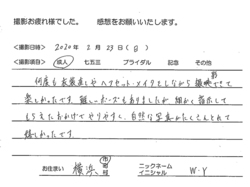 撮影お疲れ様でした。 感想をお願いいたします。
<撮影日時> 2020年 2月 23日(日)
<撮影項目> 成人 七五三 ブライダル 記念 その他
何度もお衣装直しやヘアセット・メイクをしながら撮影できて
楽しかったです。難しいポーズもありましたが細かく指示して
もらえたおかげでやりやすく、自然な写真がたくさんとれて
嬉しかったです。
お住まい 横浜 市 町 村 ニックネーム イニシャル W・Y